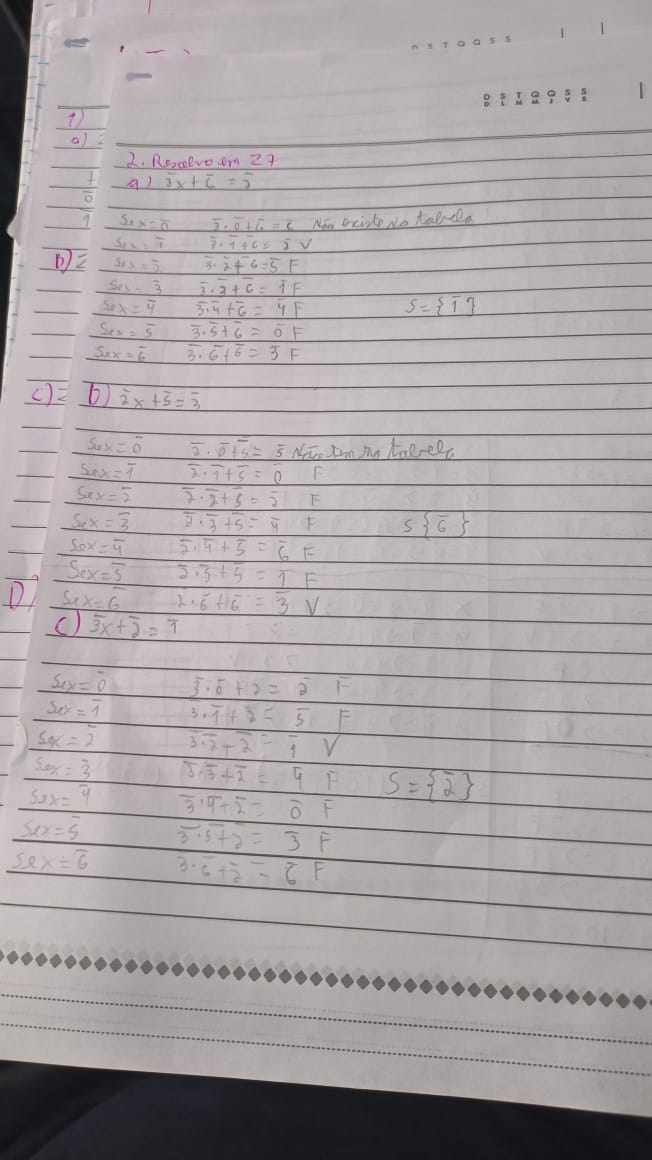 D S T Q Q S S
D S T Q Q S S
D L M M J V S
1)
a)
2. Resolva em Z7
a) 3̅x + 6̅ = 2̅
Se x = 0̅ 3̅·0̅+6̅ = 6̅ Não existe na tabela
Se x = 1̅ 3̅·1̅+6̅ = 2̅ V
b) Se x = 2̅ 3̅·2̅+6̅ = 5̅ F
Se x = 3̅ 3̅·3̅+6̅ = 1̅ F
Se x = 4̅ 3̅·4̅+6̅ = 4̅ F S = {1̅}
Se x = 5̅ 3̅·5̅+6̅ = 0̅ F
Se x = 6̅ 3̅·6̅+6̅ = 3̅ F
c) b) 2̅x + 5̅ = 3̅
Se x = 0̅ 2̅·0̅+5̅ = 5̅ Não tem na tabela
Se x = 1̅ 2̅·1̅+5̅ = 0̅ F
Se x = 2̅ 2̅·2̅+5̅ = 2̅ F
Se x = 3̅ 2̅·3̅+5̅ = 4̅ F S {6̅}
Se x = 4̅ 2̅·4̅+5̅ = 6̅ F
Se x = 5̅ 2̅·5̅+5̅ = 1̅ F
D) Se x = 6̅ 2̅·6̅+6̅ = 3̅ V
c) 3̅x + 2̅ = 1̅
Se x = 0̅ 3̅·0̅+2̅ = 2̅ F
Se x = 1̅ 3·1̅+2̅ = 5̅ F
Se x = 2̅ 3·2̅+2̅ = 1̅ V
Se x = 3̅ 3̅·3̅+2̅ = 4̅ F S = {2̅}
Se x = 4̅ 3̅·4̅+2̅ = 0̅ F
Se x = 5̅ 3̅·5̅+2̅ = 3̅ F
Se x = 6̅ 3·6̅+2̅ = 6̅ F